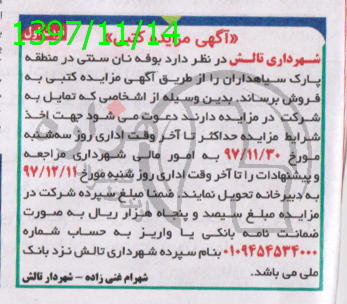 1397/11/14
«آگهی مزایده کتبی»
شهرداری تالش در نظر دارد بوفه نان سنتی در منطقه
پارک سیاهداران را از طریق آگهی مزایده کتبی به
فروش برساند. بدین وسیله از اشخاصی که تمایل به
شرکت در مزایده دارند دعوت می شود جهت اخذ
شرایط مزایده حداکثر تا آخر وقت اداری روز سه‌شنبه
مورخ ۹۷/۱۱/۳۰ به امور مالی شهرداری مراجعه
و پیشنهادات را تا آخر وقت اداری روز شنبه مورخ ۹۷/۱۲/۱۱
به دبیرخانه تحویل نمایند. ضمنا مبلغ سپرده شرکت در
مزایده مبلغ سیصد و پنجاه هزار ریال به صورت
ضمانت نامه بانکی یا واریز به حساب شماره
۰۱۰۹۴۵۴۵۳۴۰۰۰ بنام سپرده شهرداری تالش نزد بانک
ملی می باشد.
شهرام غنی زاده – شهردار تالش